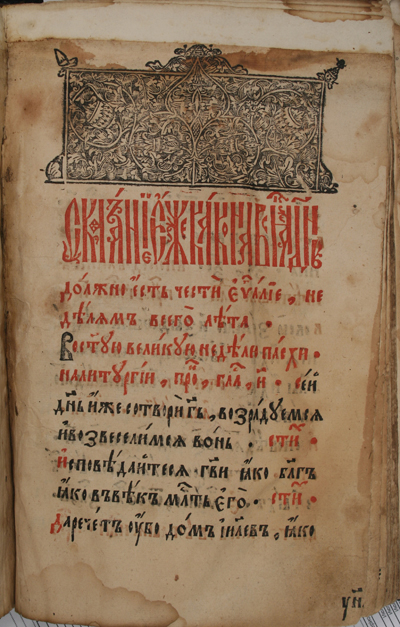 Сказаніе, еже како на всѧкъ днь
должно єсть чести Єѵⷢ҇аліе, не
дѣлѧмъ всегѡ лѣта ·
Восты́ю великую недѣлю пасхи ·
налитургїи, про́, гла́, и҃ · сеи́
днь и́же сотвори́ гь, возрадуемсѧ
и҆возвеселимсѧ во́нь · сти́ ·
И҆сповѣдаитесѧ гви ꙗ҆ко бл҃гъ
ꙗ҆ко въвѣкъ млть є҆го̀ · сти́ ·
Даречетъ оу҆бо домъ і҆и҃левъ, ꙗ҆ко